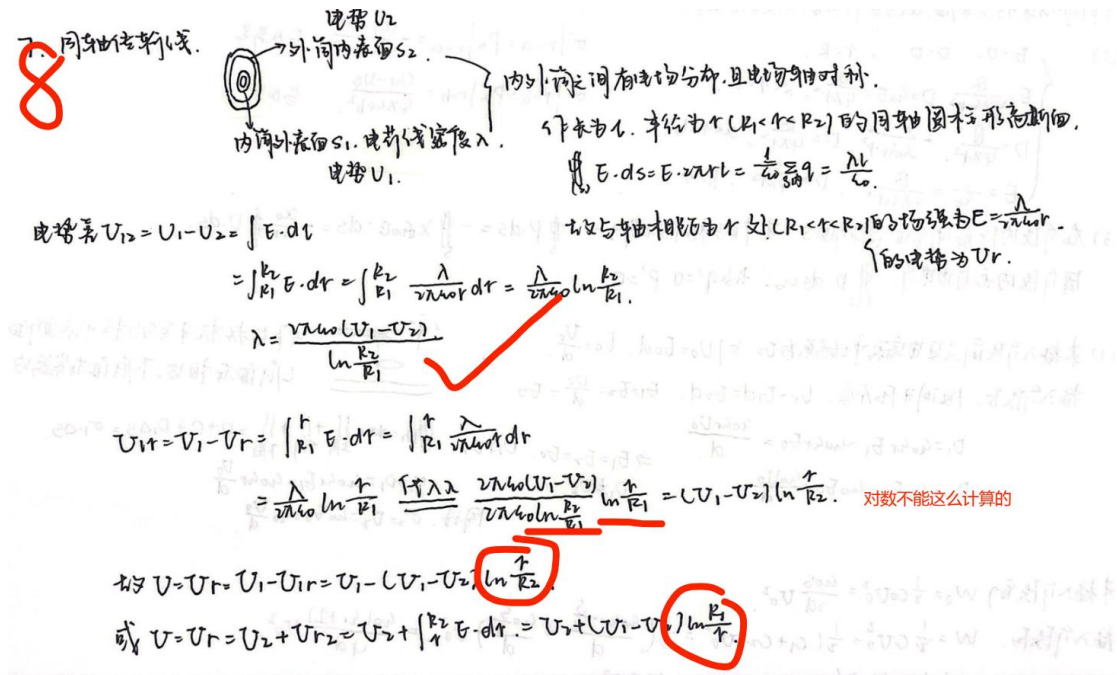 7. 同轴传输线.
8
电势 U2
外筒内表面S2.
内筒外表面S1. 电荷线密度λ.
电势U1.
内外筒之间有电场分布,且电场轴对称.
作长为l. 半径为r(R1<r<R2)的同轴圆柱形高斯面.
∯(s) E·ds=E·2πrl=1/ε0 Σ(s内) q = λl/ε0.
故与轴相距为r处(R1<r<R2)的场强为E=λ/2πε0r.
的电势为Ur.
电势差U12=U1-U2=∫E·dl
=∫R1 R2 E·dr=∫R1 R2 λ/2πε0r dr = λ/2πε0 ln R2/R1.
λ= 2πε0(U1-U2) / ln R2/R1
U1r=U1-Ur=∫R1 r E·dr=∫R1 r λ/2πε0r dr
= λ/2πε0 ln r/R1 代入λ 2πε0(U1-U2)/2πε0 ln R2/R1 ln r/R1 =(U1-U2)ln r/R2. 对数不能这么计算的
故U=Ur=U1-U1r=U1-(U1-U2)ln r/R2.
或 U=Ur=U2+Ur2=U2+∫r R2 E·dr=U2+(U1-U2)ln R1/r.